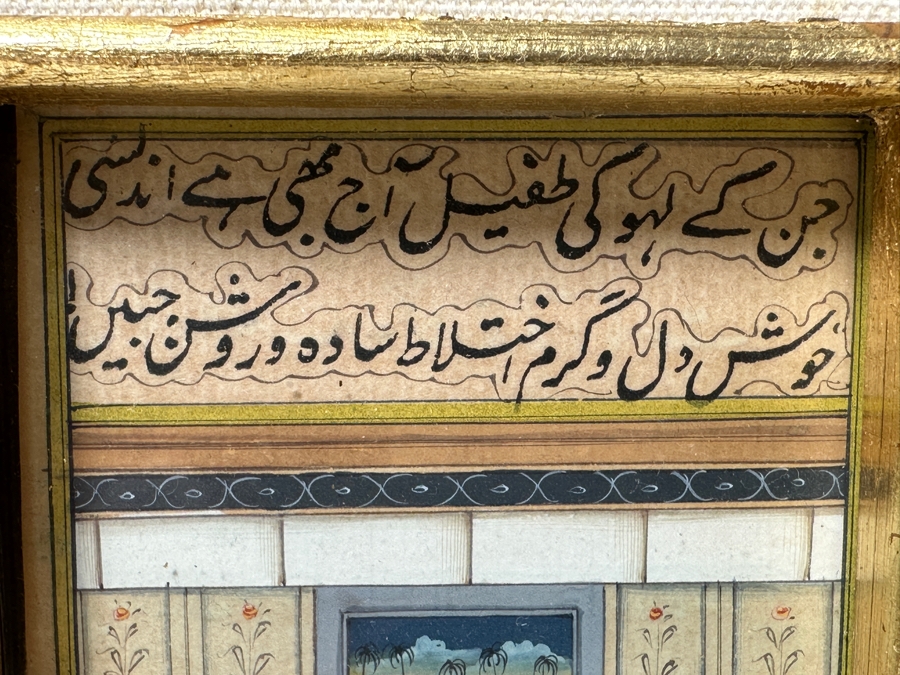 جن کے لہو کی طفیل آج بھی ہے اندلسی
خوش دل و گرم اختلاط سادہ و روشن جبیں